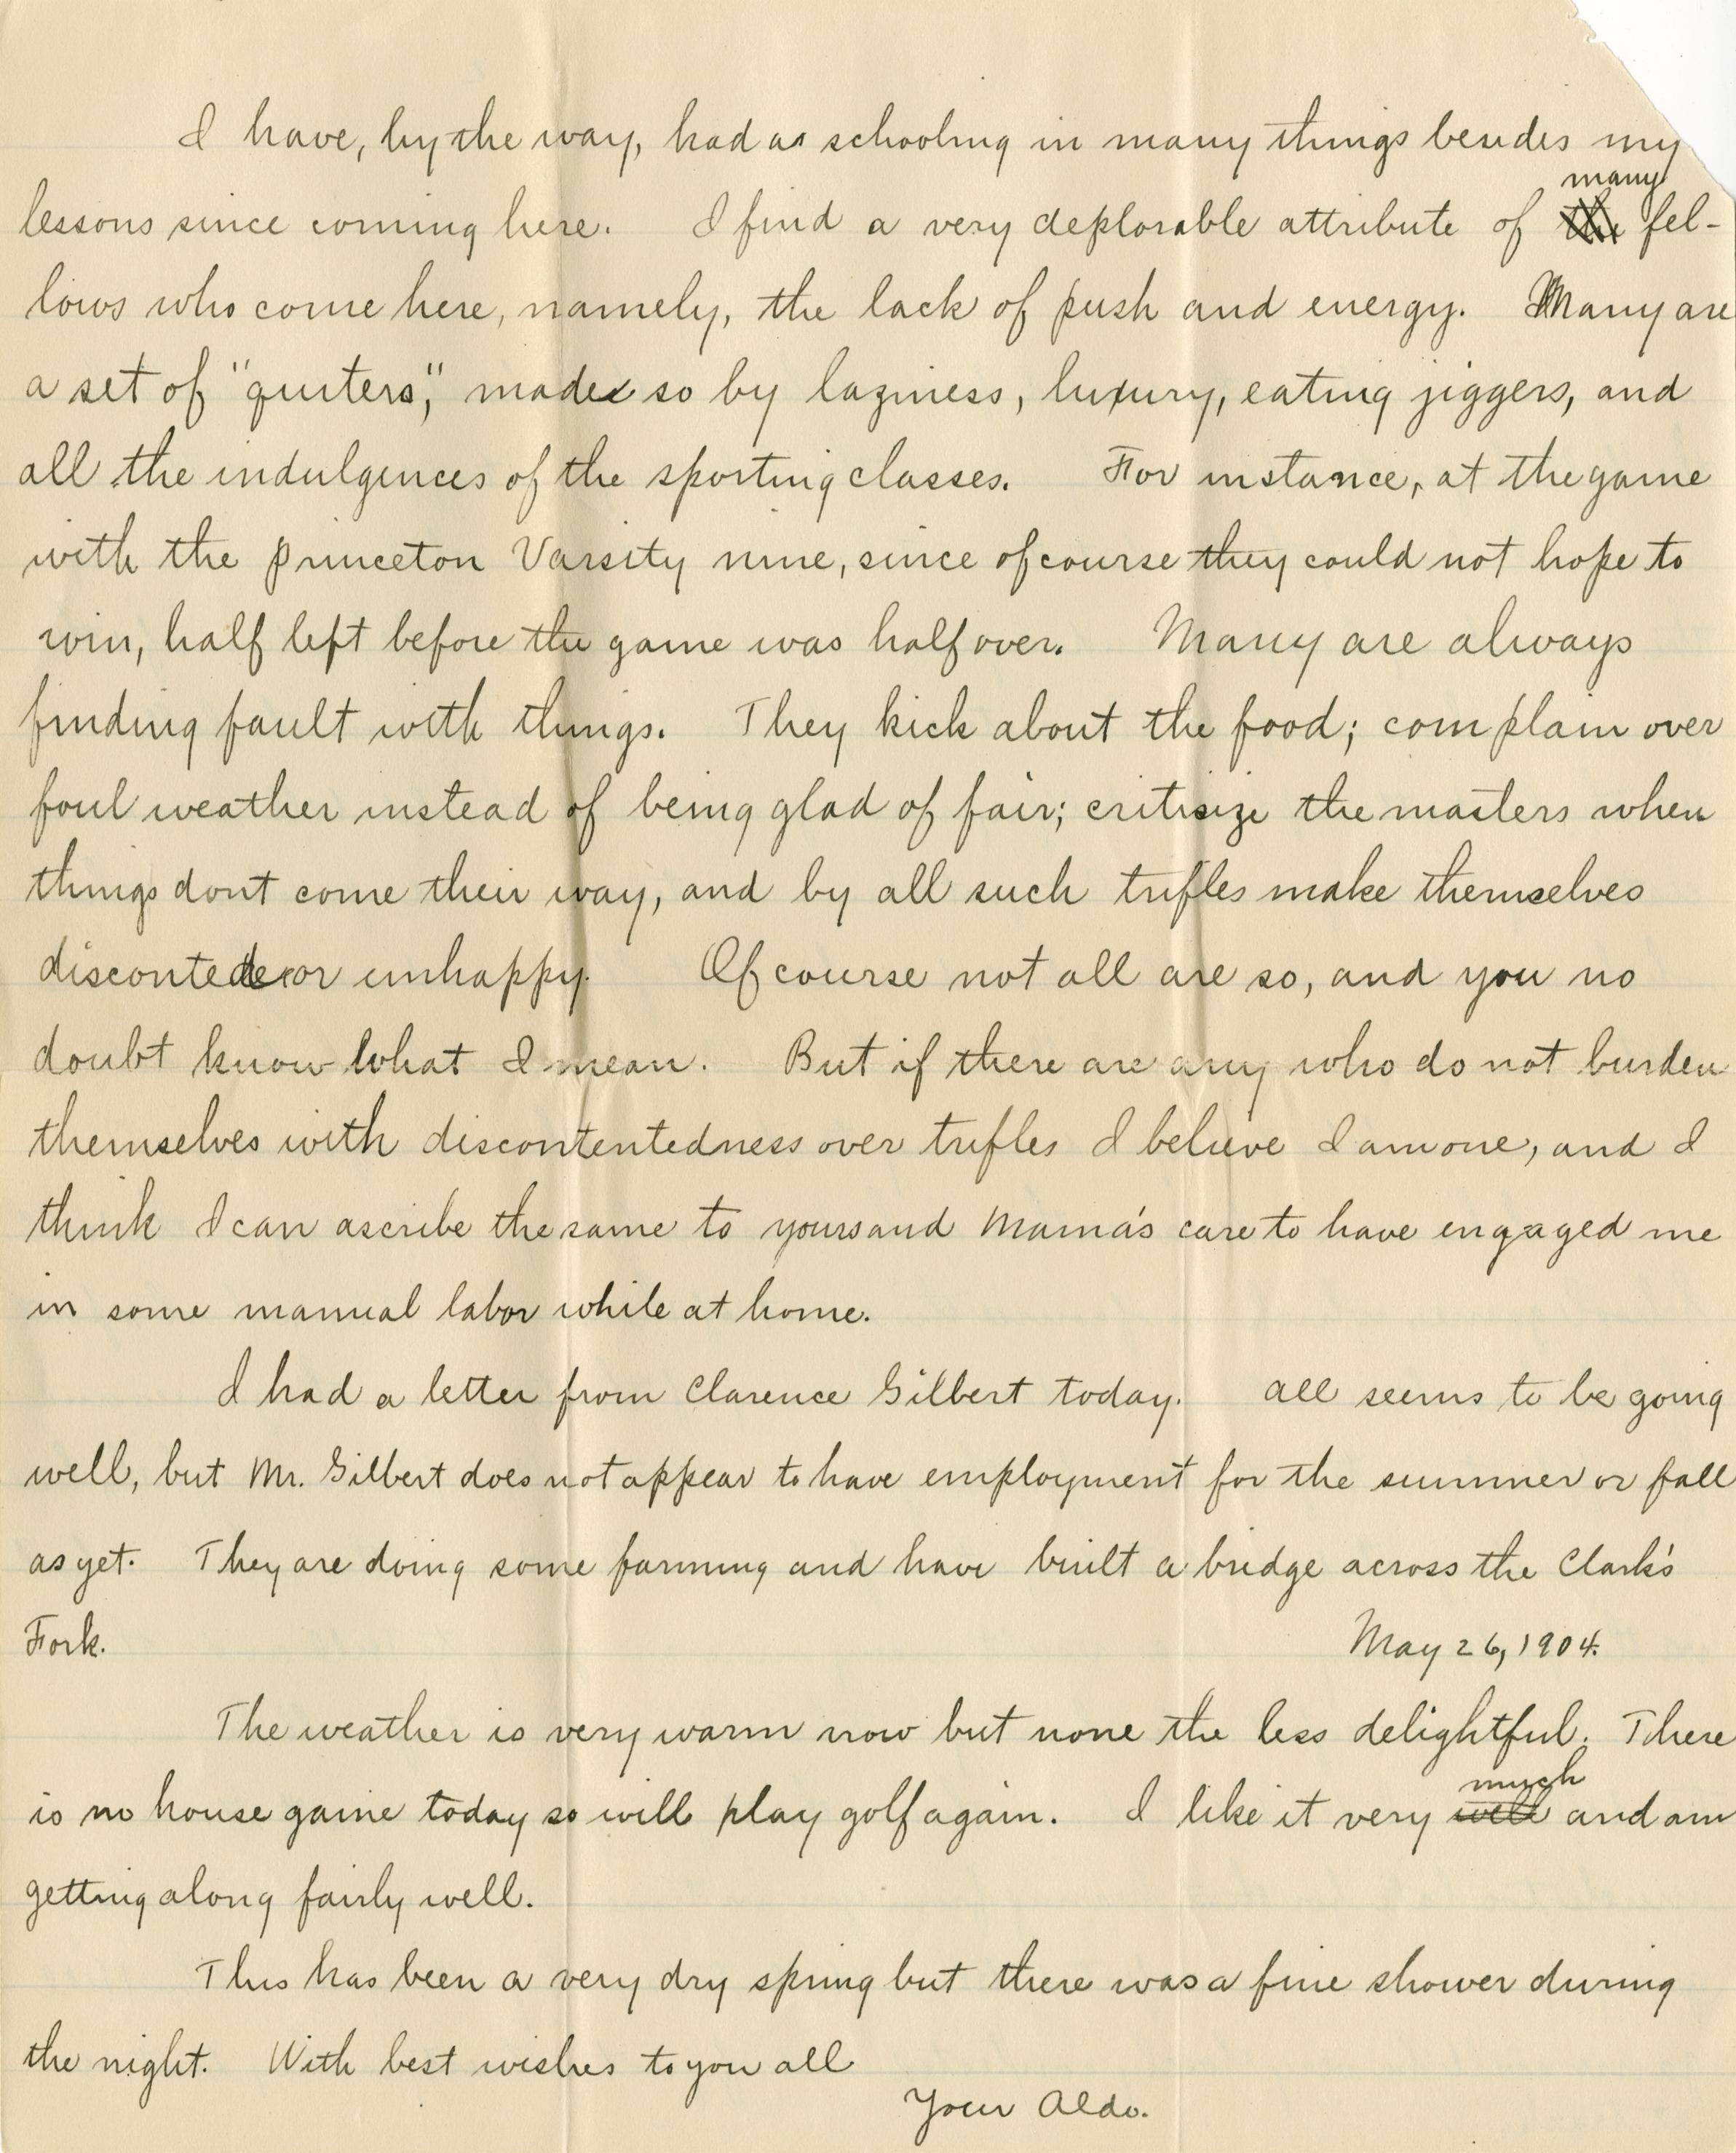 I have, by the way, had a schooling in many things besides my
many
lessons since coming here. I find a very deplorable attribute of the fel-
lows who come here, namely, the lack of push and energy. Many are
a set of "quiters," made so by laziness, luxury, eating jiggers, and
all the indulgences of the sporting classes. For instance, at the game
with the Princeton Varsity nine, since of course they could not hope to
win, half left before the game was half over. Many are always
finding fault with things. They kick about the food; complain over
foul weather instead of being glad of fair; critisize the masters when
things dont come their way, and by all such trifles make themselves
or unhappy. Of course not all are so, and you no
doubt know what I mean. But if there are any who do not burden
themselves with discontentedness over trifles I believe I am one, and I
think I can ascribe the same to yours and Mama's care to have engaged me
in some manual labor while at home.
I had a letter from Clarence Gilbert today. All seems to be going
well, but Mr. Gilbert does not appear to have employment for the summer or fall
as yet. They are doing some farming and have built a bridge across the Clark's
Fork.
May 26, 1904.
The weather is very warm now but none the less delightful. There
much
is no house game today so will play golf again. I like it very well and am
getting along fairly well.
This has been a very dry spring but there was a fine shower during
the night. With best wishes to you all
Your Aldo.